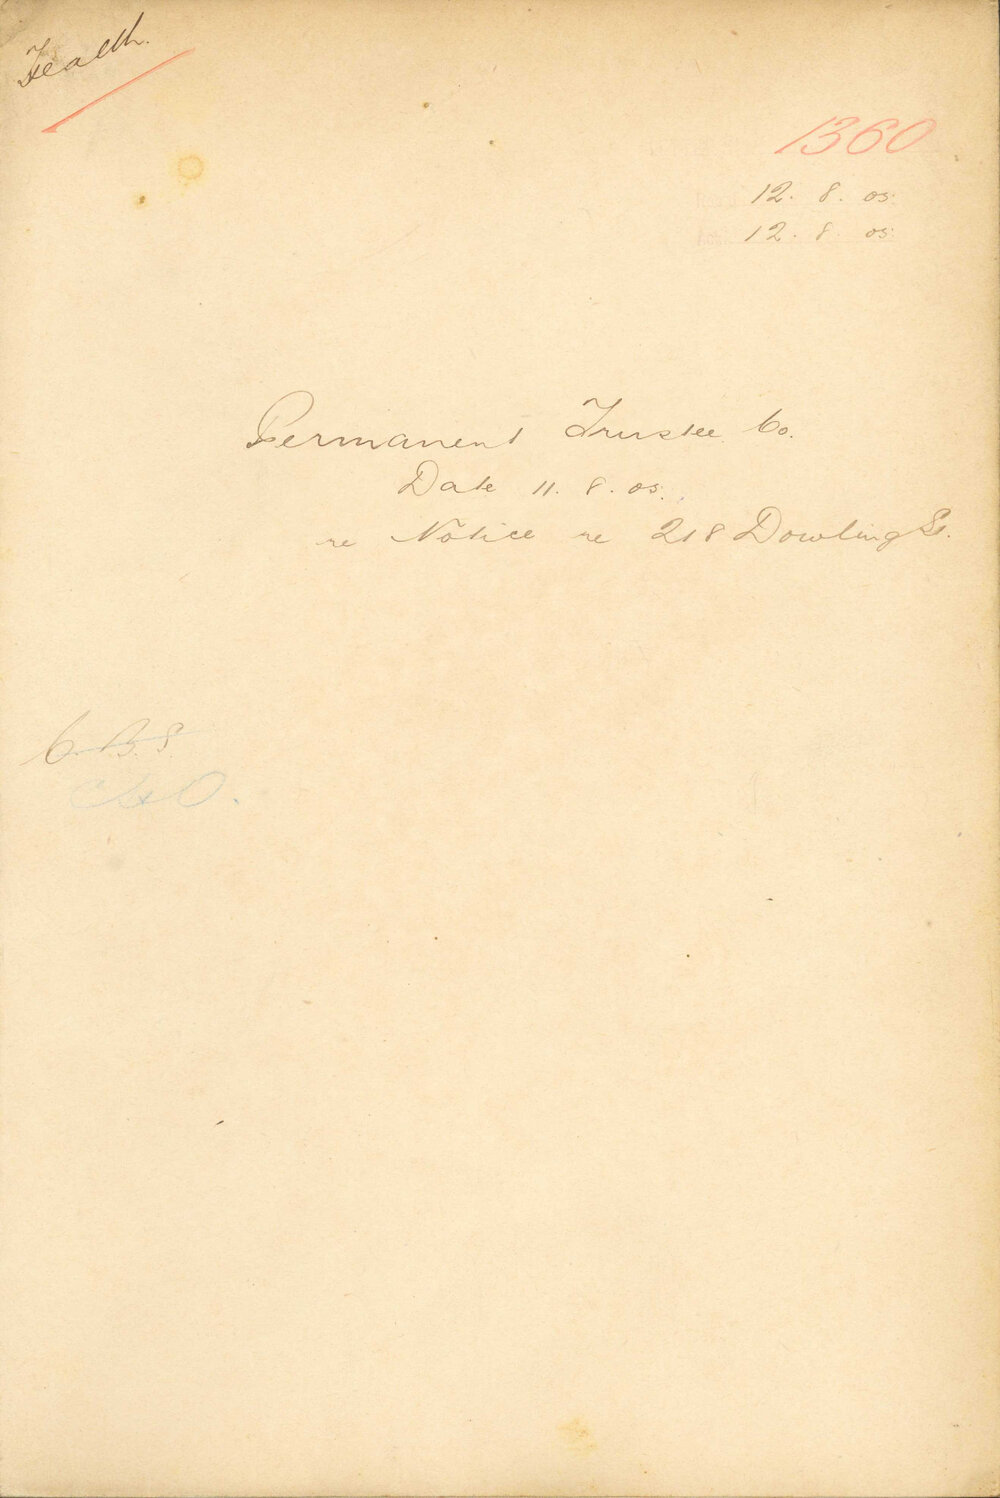 Health.
1360
12. 8. 05.
12. 8. 05.
Permanent Trustee Co.
Date 11. 8. 05.
re Notice re 218 Dowling St.
C.B.S.